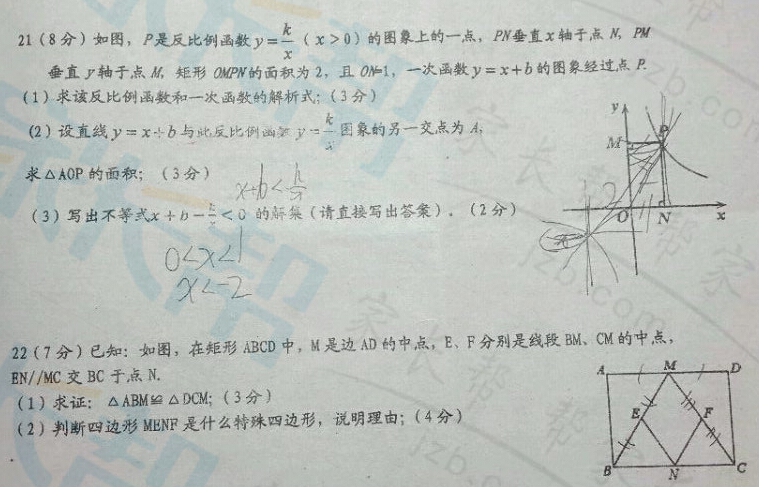 21(8分)如图，P是反比例函数y=k/x（x>0）的图象上的一点，PN垂直x轴于点N，PM
垂直y轴于点M，矩形OMPN的面积为2，且ON=1，一次函数y=x+b的图象经过点P.
(1)求该反比例函数和一次函数的解析式；(3分)
(2)设直线y=x+b与此反比例函数y=k/x图象的另一交点为A，
求△AOP的面积；(3分)
x+b<k/x
(3)写出不等式x+b-k/x<0的解集(请直接写出答案)．(2分)
0<x<1
x<-2
y
M
P
2
O
N
x
22(7分)已知：如图，在矩形ABCD中，M是边AD的中点，E、F分别是线段BM、CM的中点，
EN//MC交BC于点N.
(1)求证：△ABM≌△DCM；(3分)
(2)判断四边形MENF是什么特殊四边形，说明理由；(4分)
A
M
D
E
F
B
N
C
家长帮
jzb.com
家长帮
jzb.com